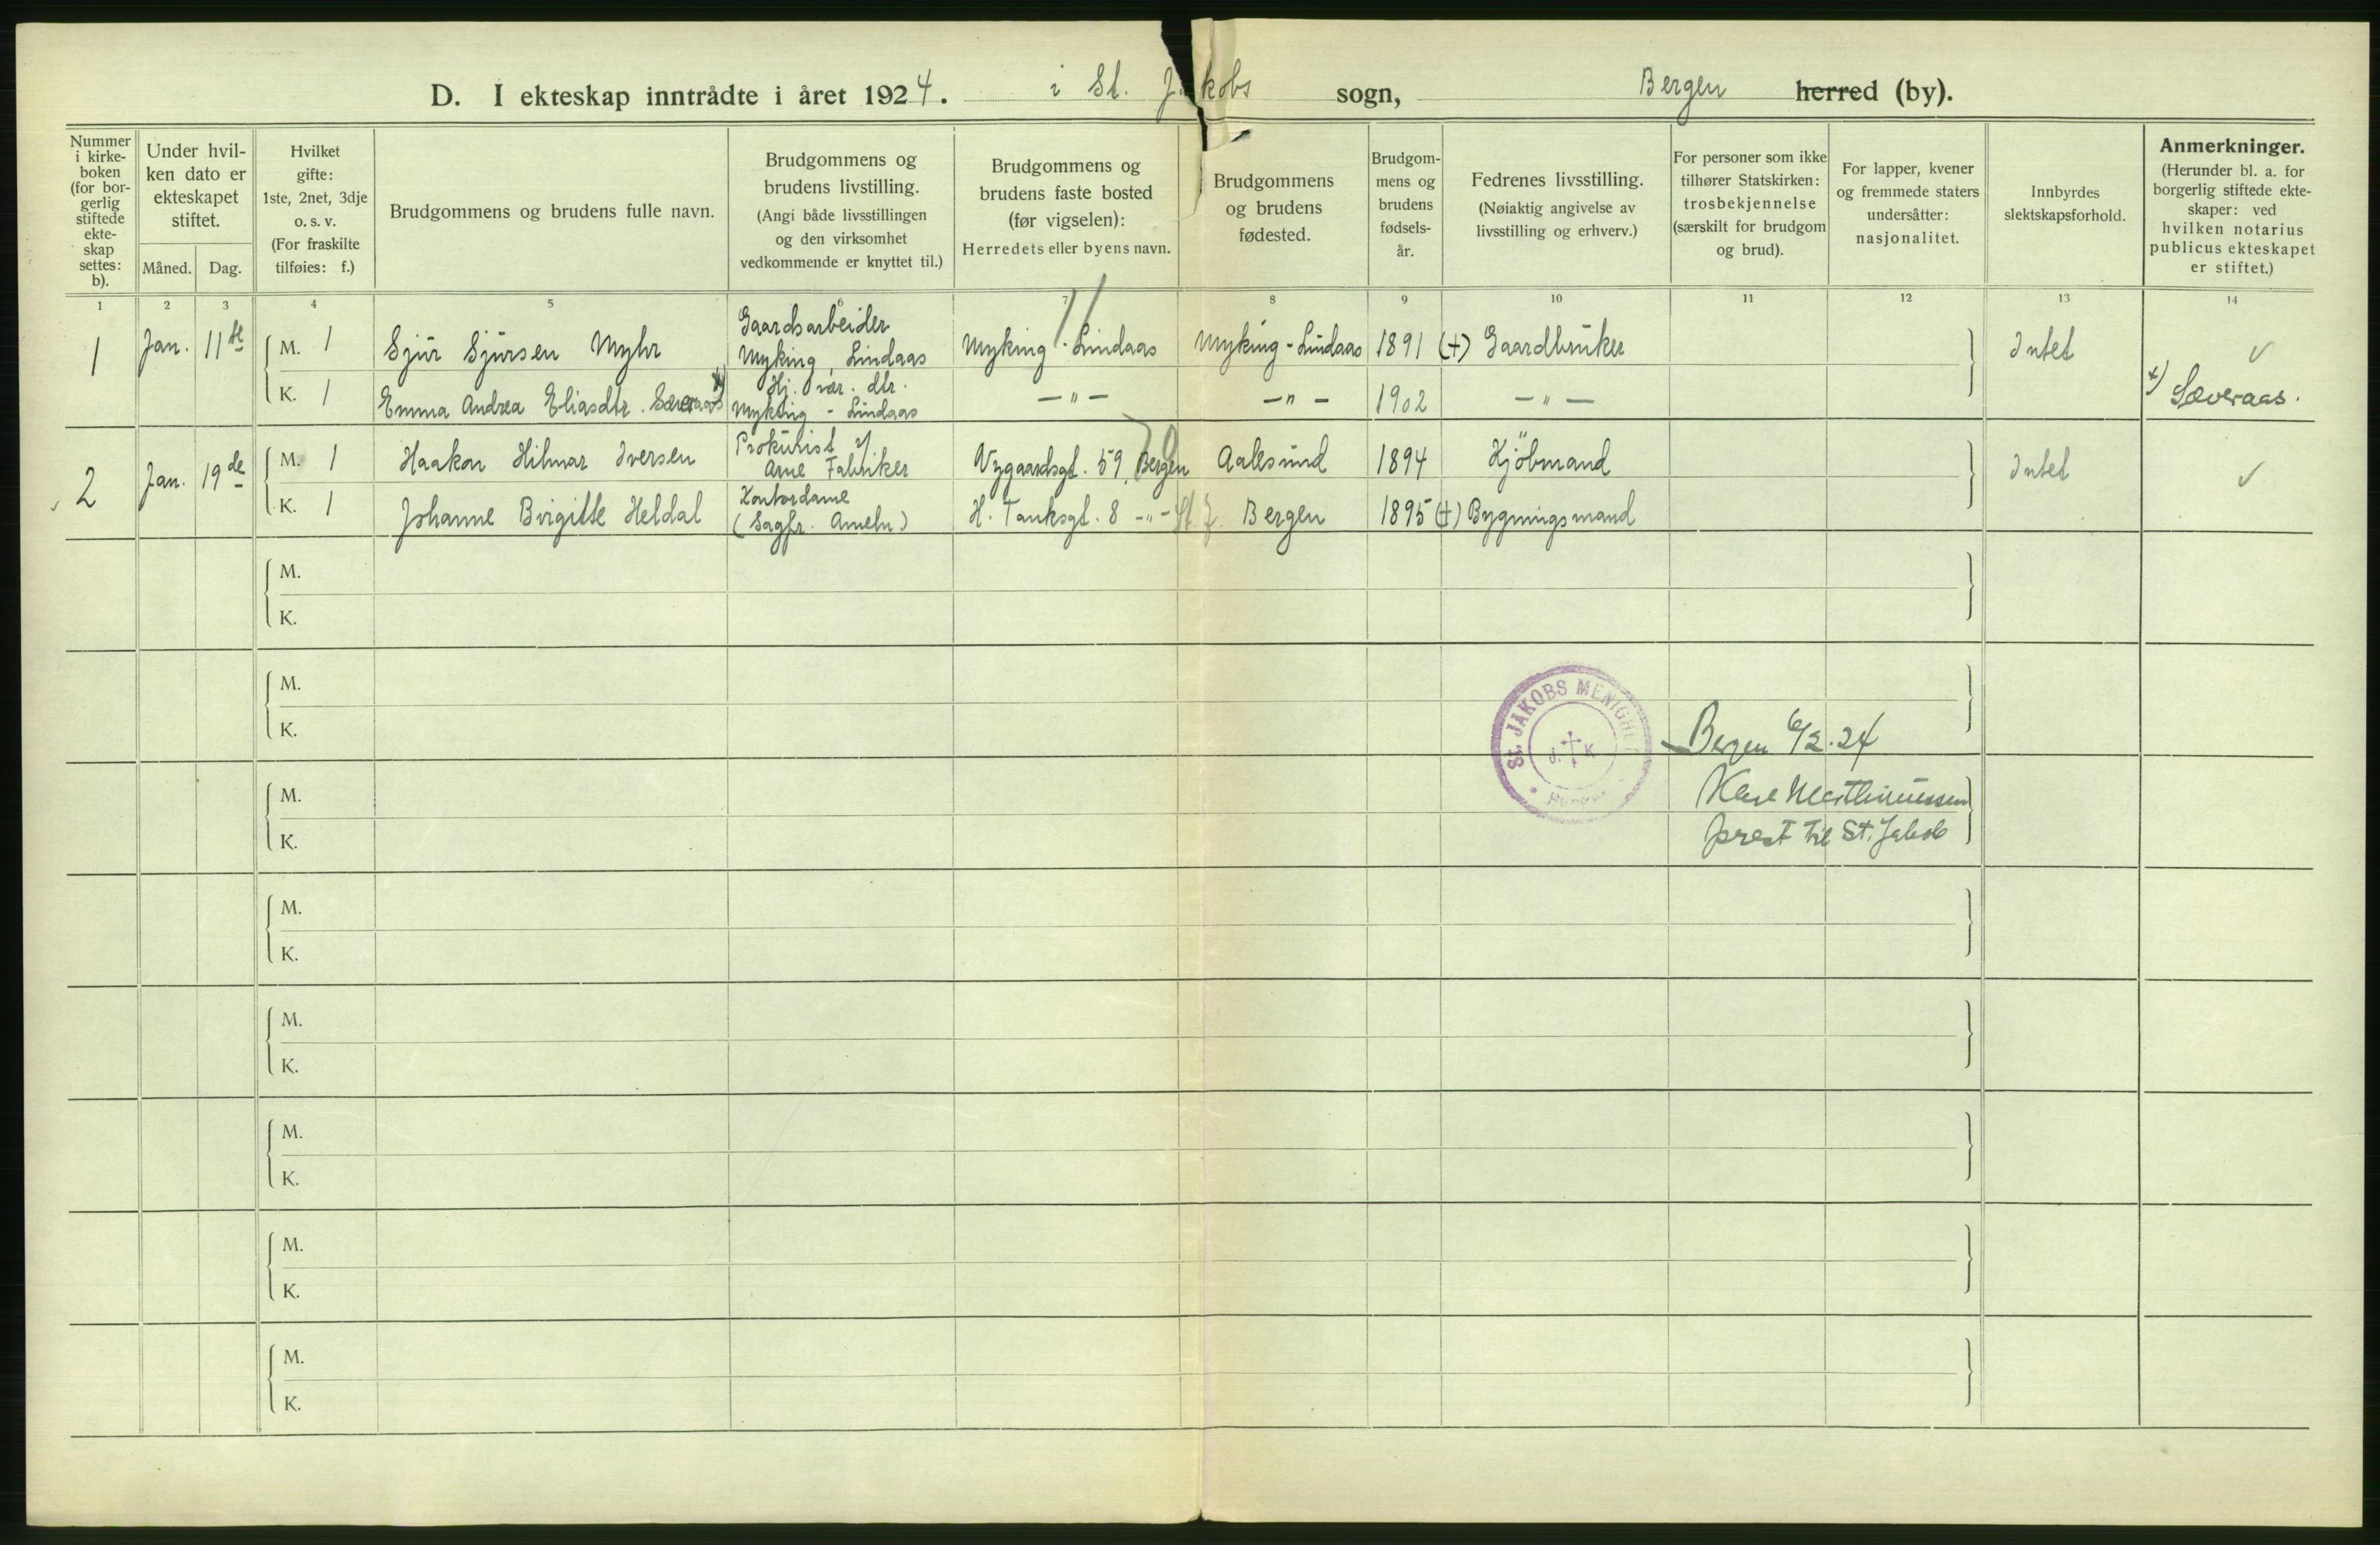 D. I ekteskap inntrådte i året 1924. i St. Jakobs sogn, Bergen herred (by).
Nummer i kirkeboken (for borgerlig stiftede ekteskap settes: b).
Under hvilken dato er ekteskapet stiftet.
Måned. Dag.
Hvilket gifte: 1ste, 2net, 3dje o. s. v. (For fraskilte tilføies: f.)
Brudgommens og brudens fulle navn.
Brudgommens og brudens livstilling. (Angi både livsstillingen og den virksomhet vedkommende er knyttet til.)
Brudgommens og brudens faste bosted (før vigselen): Herredets eller byens navn.
Brudgommens og brudens fødested.
Brudgommens og brudens fødselsår.
Fedrenes livsstilling. (Nøiaktig angivelse av livsstilling og erhverv.)
For personer som ikke tilhører Statskirken: trosbekjennelse (særskilt for brudgom og brud).
For lapper, kvener og fremmede staters undersåtter: nasjonalitet.
Innbyrdes slektskapsforhold.
Anmerkninger. (Herunder bl. a. for borgerlig stiftede ekteskaper: ved hvilken notarius publicus ekteskapet er stiftet.)
1 2 3 4 5 6 7 8 9 10 11 12 13 14
1 Jan. 11te M. 1 Sjur Sjursen Myhr Gaardsarbeider Myking, Lindaas Myking - Lindaas Myking - Lindaas 1891 (+) Gaardbruker Intet
K. 1 Emma Andrea Eliasdtr. Sæveraas x) Hj. vær. dtr. Myking - Lindaas — " — — " — 1902 — " — x) Sæveraas.
2 Jan. 19de M. 1 Haakon Hilmar Iversen Prokurist v/ Arne Fabriker Nygaardsgt. 59, Bergen Aalesund 1894 Kjöbmand Intet
K. 1 Johanne Birgitte Heldal Kontordame (Sagfr. Ameln) H. Tanksgt. 8 - " - St. J. Bergen 1895 (+) Bygningsmand
M.
K.
M.
K.
St. JAKOBS MENIGHET
J. K
Bergen 6/2. 24
M.
K.
prest til St. Jakob
M.
K.
M.
K.
M.
K.
M.
K.
M.
K.